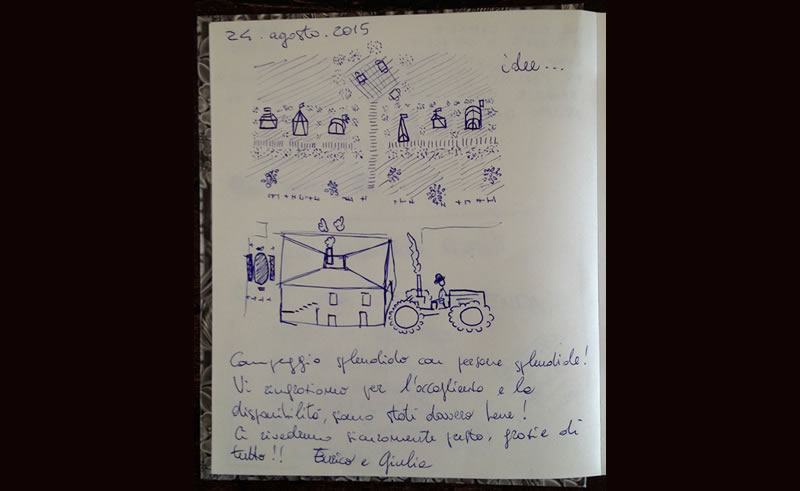 24. agosto. 2015
idee...
Campeggio splendido con persone splendide!
Vi ringraziamo per l'accoglienza e la
disponibilità, siamo stati davvero bene!
Ci rivedremo sicuramente presto, grazie di
tutto!! Enrico e Giulia